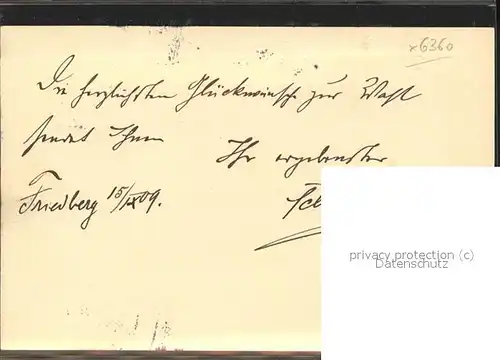 x6360
Die herzlichsten Glückwünsche zur Wahl
sendet Ihnen
Ihr ergebenster
Friedberg 15/IX 09.
privacy protection (c)
Datenschutz